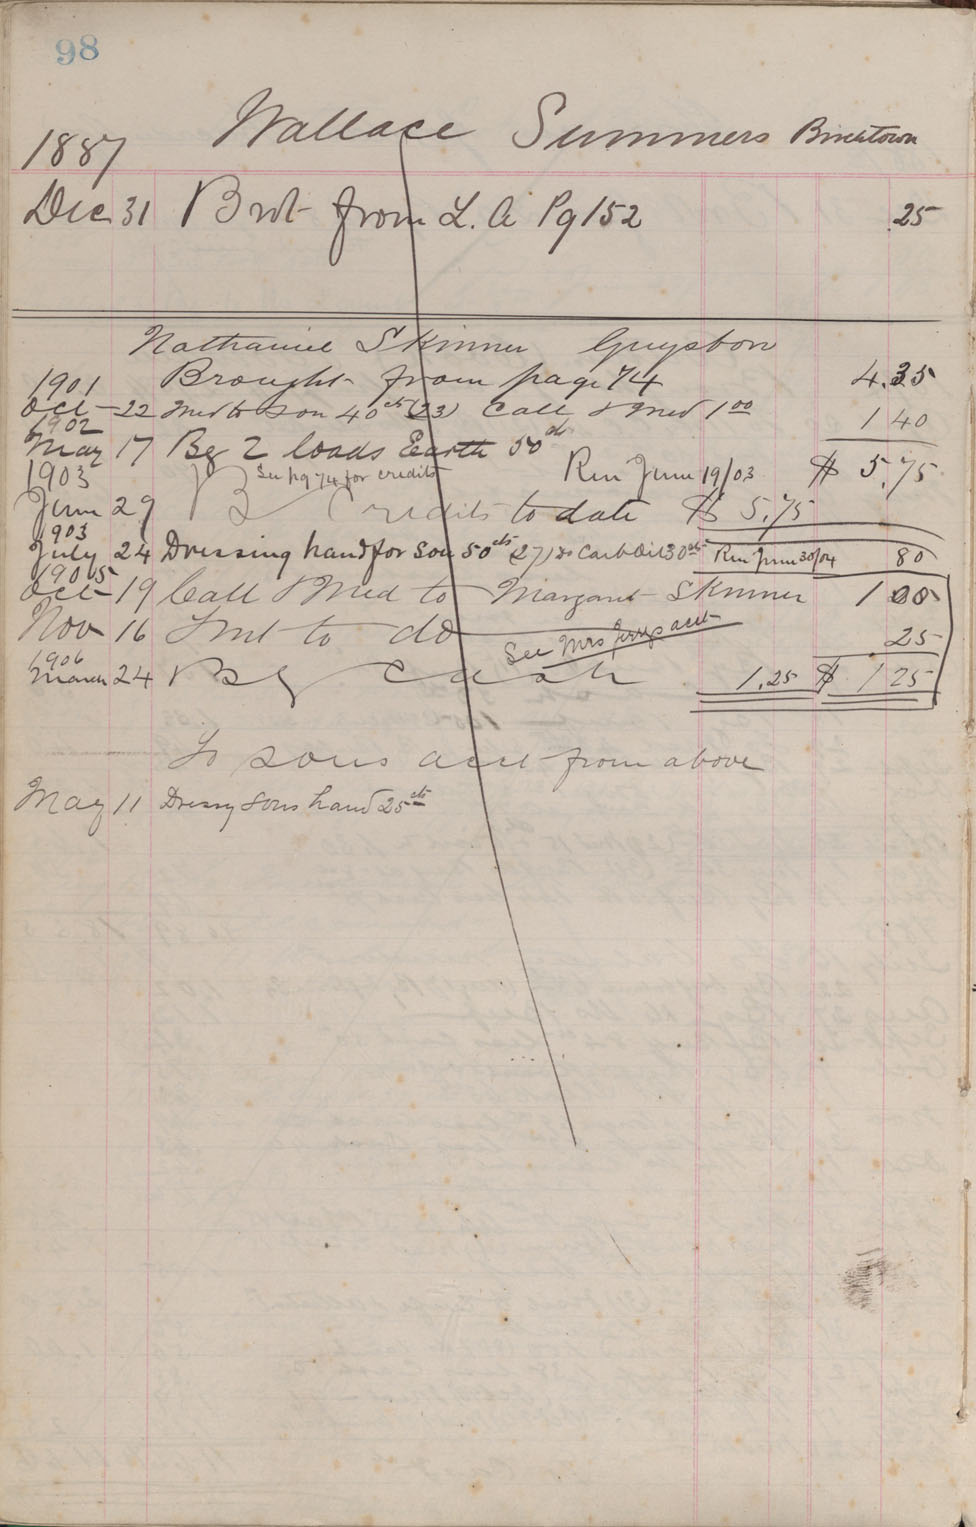 98
Wallace Summers
1887
Dec 31 Brot from L. A Pg 152 25
Nathaniel Skinner Guysbor
1901 Brought from page 74 4.35
Oct 22 Med to Son 40 cts (23) Call & Med 1 00 1 40
1902
May 17 By 2 loads Earth 50 cts
1903 See pg 74 for credits Ren June 19/03 $ 5.75
June 29 By Credits to date $ 5.75
1903
July 24 Dressing hand for Son 50 cts (27) do Carb Oil 30 cts Ren June 30/04 80
1905
Oct 19 Call & Med to Margaret Skinner 1 00
Nov 16 to do 25
See Mrs acct
1906
March 24 By Cash 1.25 $ 1 25
To sons acct from above
May 11 Dressg sons hand 25 cts